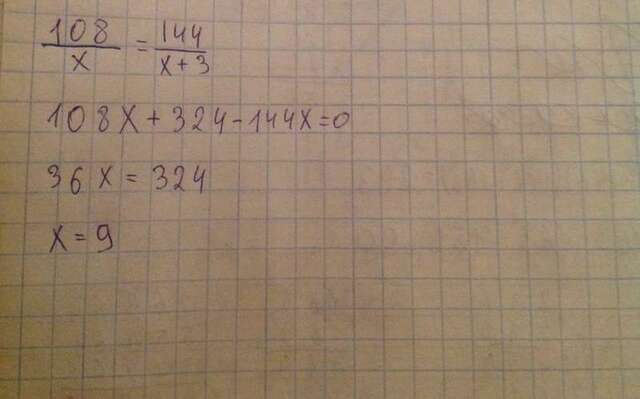 108/x = 144/x+3
108x+324-144x=0
36x=324
x=9